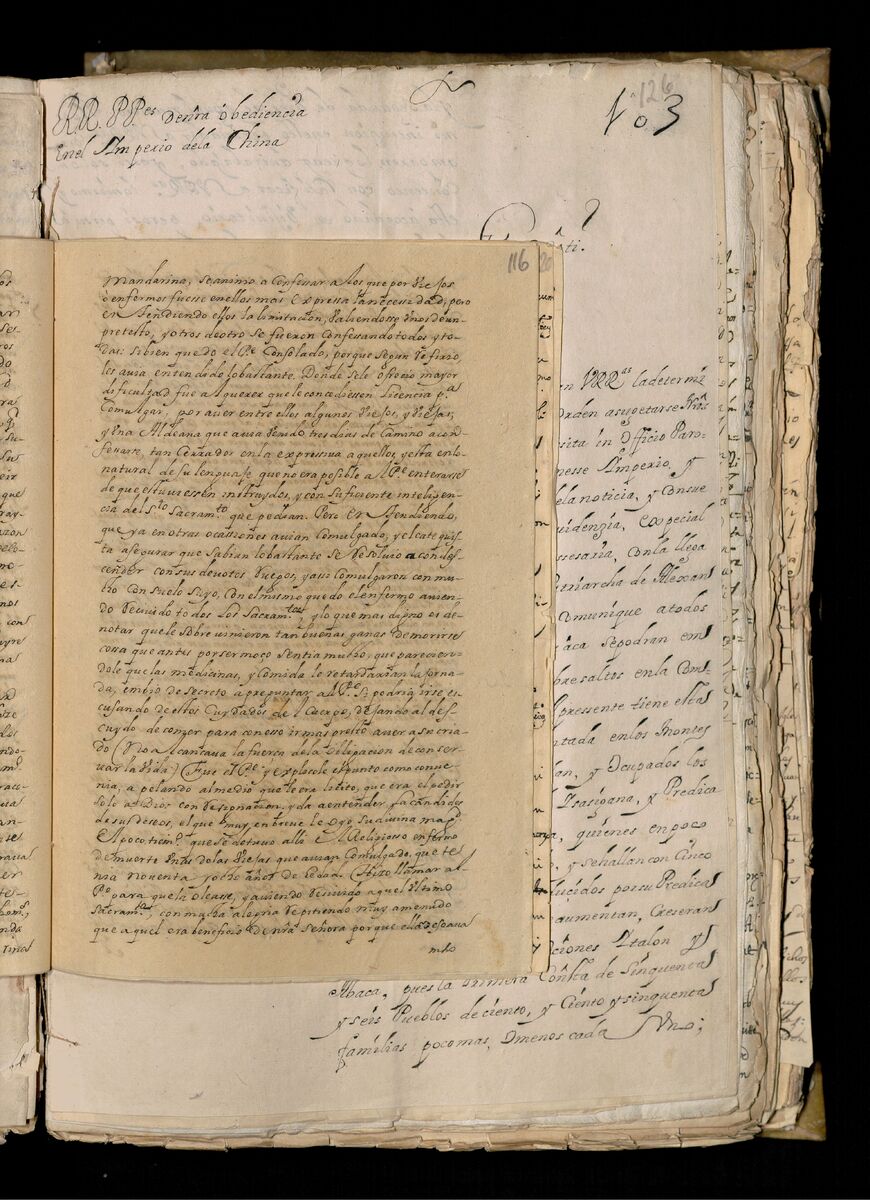 R.R. P.Pes. de nra obediencia
En el Imperio dela China
126
No 3
116
Mandarina, seanimo a Confessar a los que por Viejos
o enfermos fuesse enellos mas Expressa lanecessidad, pero
en tendiendo ellos la limitacion, Valiendosse Vnos deun
pretexto, y otros de otro se fueron Confessando todos y to
das: sibien quedo el Pe. Consolado, porque segun Refirio,
les auia entendido lobastante. Donde sele ofrecio mayor
dificultad fue al querer que le concediessen Licencia pa.
Comulgar, por auer entre ellos algunos Viejos, y Viejas,
y Vna Aldeana que auia Venido tres dias de Camino a con
fessarse, tan Cerrados en la expressiua aquellos, y esta enlo
natural de su lenguaje que no era posible al Pe enterarse
de que estuuiessen instruydos, y con suficiente inteligen
cia del Sto. Sacramto. que pedian. Pero en tendiendo,
que ya en otras occassiones auian Comulgado, y el cate quis
ta asegurar que sabian lobastante se Resoluio a condes
cender con sus deuotos Ruegos, y assi Comulgaron con mu
cho Consuelo suyo. Con el mismo quedo el enfermo auien
do Reciuido todos los Sacramtos. y lo que mas digno es de
notar que le sobre uinieron tan buenas ganas de morirse
cossa que antes por ser moço sentia mucho, que parecien
dole que las medicinas, y comida le retardarian la Jorna
da, embio de secreto a preguntar al Pe. si podria irse es
cusando de estos Cuydados del Cuerpo, dejando al des
cuydo de comer para con esso ir mas presto a uer a su cria
do (No alcantaua la fuerza de la obligacion de conser
uar la Vida) Fue el Pe. y explicole el punto como conue
nia, a pelando al medio que le era licito, que era el pedir
solo a Dios con Resignazion, y da a entender la candidés
de sus deseos, el que muy en breue le oyo su diuina magd.
El poco tiempo. que se detuuo alli el Religiosso enfermo
de muerte Vna de las Viejas que auian Comulgado, que te
nia nouenta y ocho años de hedad. Hizo llamar al
Pe. para que la oleasse, y auiendo Reciuido aquel Vltimo
Sacramto., con mucha alegria Repitiendo muy amenudo
que aquel era beneficio de nra. Señora porque ella desseaua
mto
en VRRas ladetermi
Orden asugetarse
sita in Officio Paro-
nesse Imperio, y
ela noticia, y Conue
Especial
essesaria, con la llega
triarcha de Alexan
Comunique a todos
sepodran em
presente tiene esta
en los Montes
y Ocupados los
y Predica
quienes en poco
y sehallan con Cinco
lucidos por su Predica
aumentan, Creseran
ciones Italon y
Abaca, pues la primera Consta de Sinquenta
y seis Pueblos de ciento, y Ciento y sinquenta
familias poco mas, o menos cada Vno;